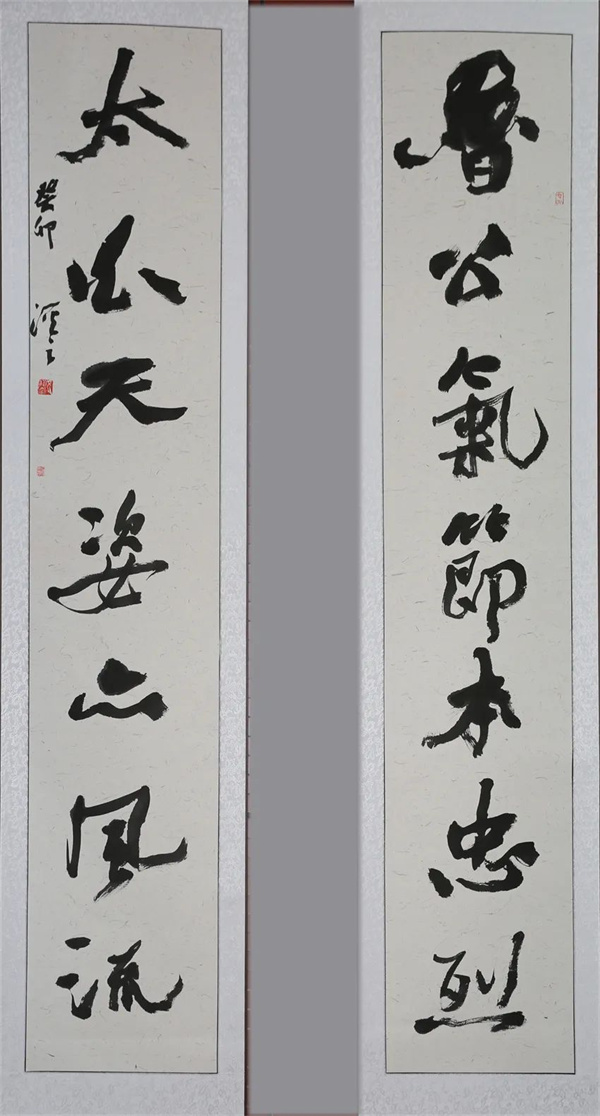 魯公氣節本忠烈
太白天姿亦風流
癸卯